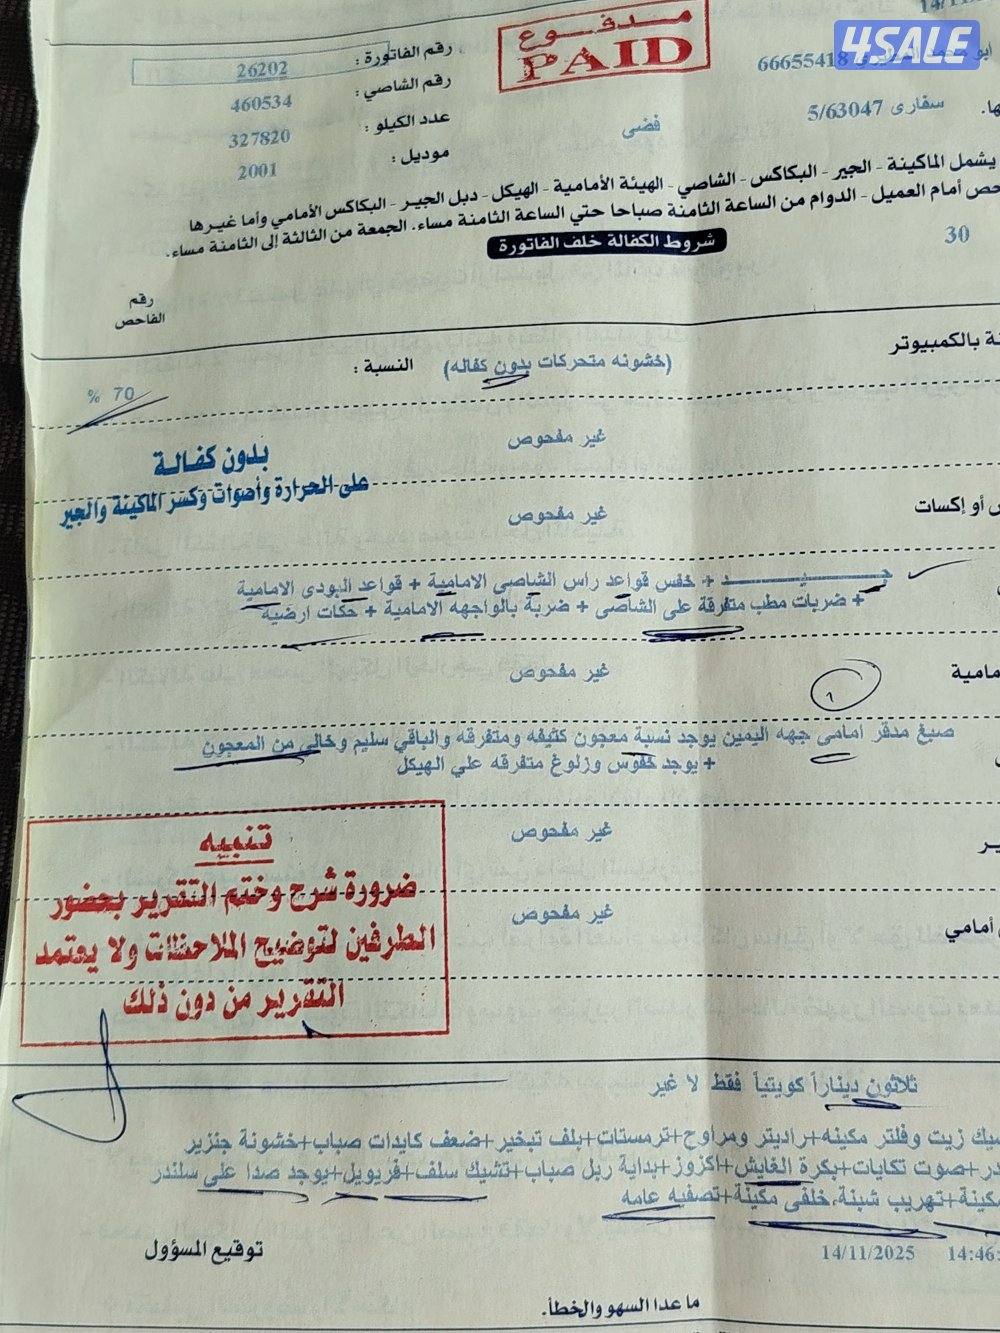 14/11
4SALE
مدفوع
PAID
66655418
رقم الفاتورة : 26202
رقم الشاصي : 460534
سفارى 5/63047
فضى
عدد الكيلو : 327820
موديل : 2001
يشمل الماكينة - الجير - البكاكس - الشاصي - الهيئة الأمامية - الهيكل - دبل الجير - البكاكس الأمامي وأما غيرها
حص أمام العميل - الدوام من الساعة الثامنة صباحا حتي الساعة الثامنة مساء. الجمعة من الثالثة إلى الثامنة مساء.
30
شروط الكفالة خلف الفاتورة
رقم
الفاحص
بالكمبيوتر
(خشونه متحركات بدون كفاله)
النسبة :
70 %
غير مفحوص
بدون كفالة
على الحرارة وأصوات وكسر الماكينة والجير
أو إكسات
غير مفحوص
جيد + خفس قواعد راس الشاصى الامامية + قواعد البودى الامامية
+ ضربات مطب متفرقة على الشاصى + ضربة بالواجهه الامامية + حكات ارضيه
غير مفحوص
صبغ مدفر امامى جهه اليمين يوجد نسبة معجون كثيفه ومتفرقه والباقي سليم وخالى من المعجون
+ يوجد خفوس وزلوغ متفرقه علي الهيكل
غير مفحوص
أمامي
غير مفحوص
تنبيه
ضرورة شرح وختم التقرير بحضور
الطرفين لتوضيح الملاحظات ولا يعتمد
التقرير من دون ذلك
ثلاثون ديناراً كويتياً فقط لا غير
زيت وفلتر مكينه+راديتر ومراوح+ترمستات+بلف تبخير+ضعف كايدات صباب+خشونة جنزير
+صوت تكايات+بكرة الغايش+اكزوز+بداية ربل صباب+تشيك سلف+فريويل+يوجد صدا على سلندر
+تهريب شبنة،خلفى مكينة+تصفيه عامه
14/11/2025 14:46:
توقيع المسؤول
ما عدا السهو والخطأ.